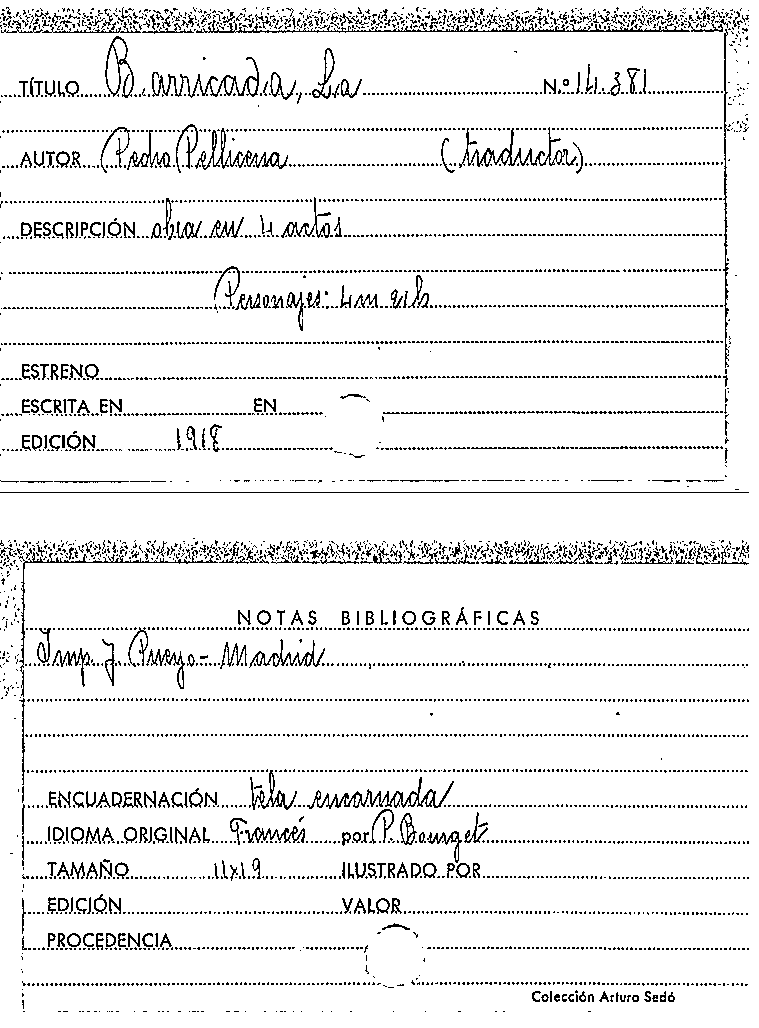 TÍTULO Barricada, La N.º 14.381
AUTOR Pedro Pellicena (traductor)
DESCRIPCIÓN obra en 4 actos
Personajes: 4m 21h
ESTRENO
ESCRITA EN EN
EDICIÓN 1918
NOTAS BIBLIOGRÁFICAS
Imp. J. Pueyo - Madrid
ENCUADERNACIÓN tela encarnada
IDIOMA ORIGINAL Francés por P. Bourget
TAMAÑO 11x19 ILUSTRADO POR
EDICIÓN VALOR
PROCEDENCIA
Colección Arturo Sedó